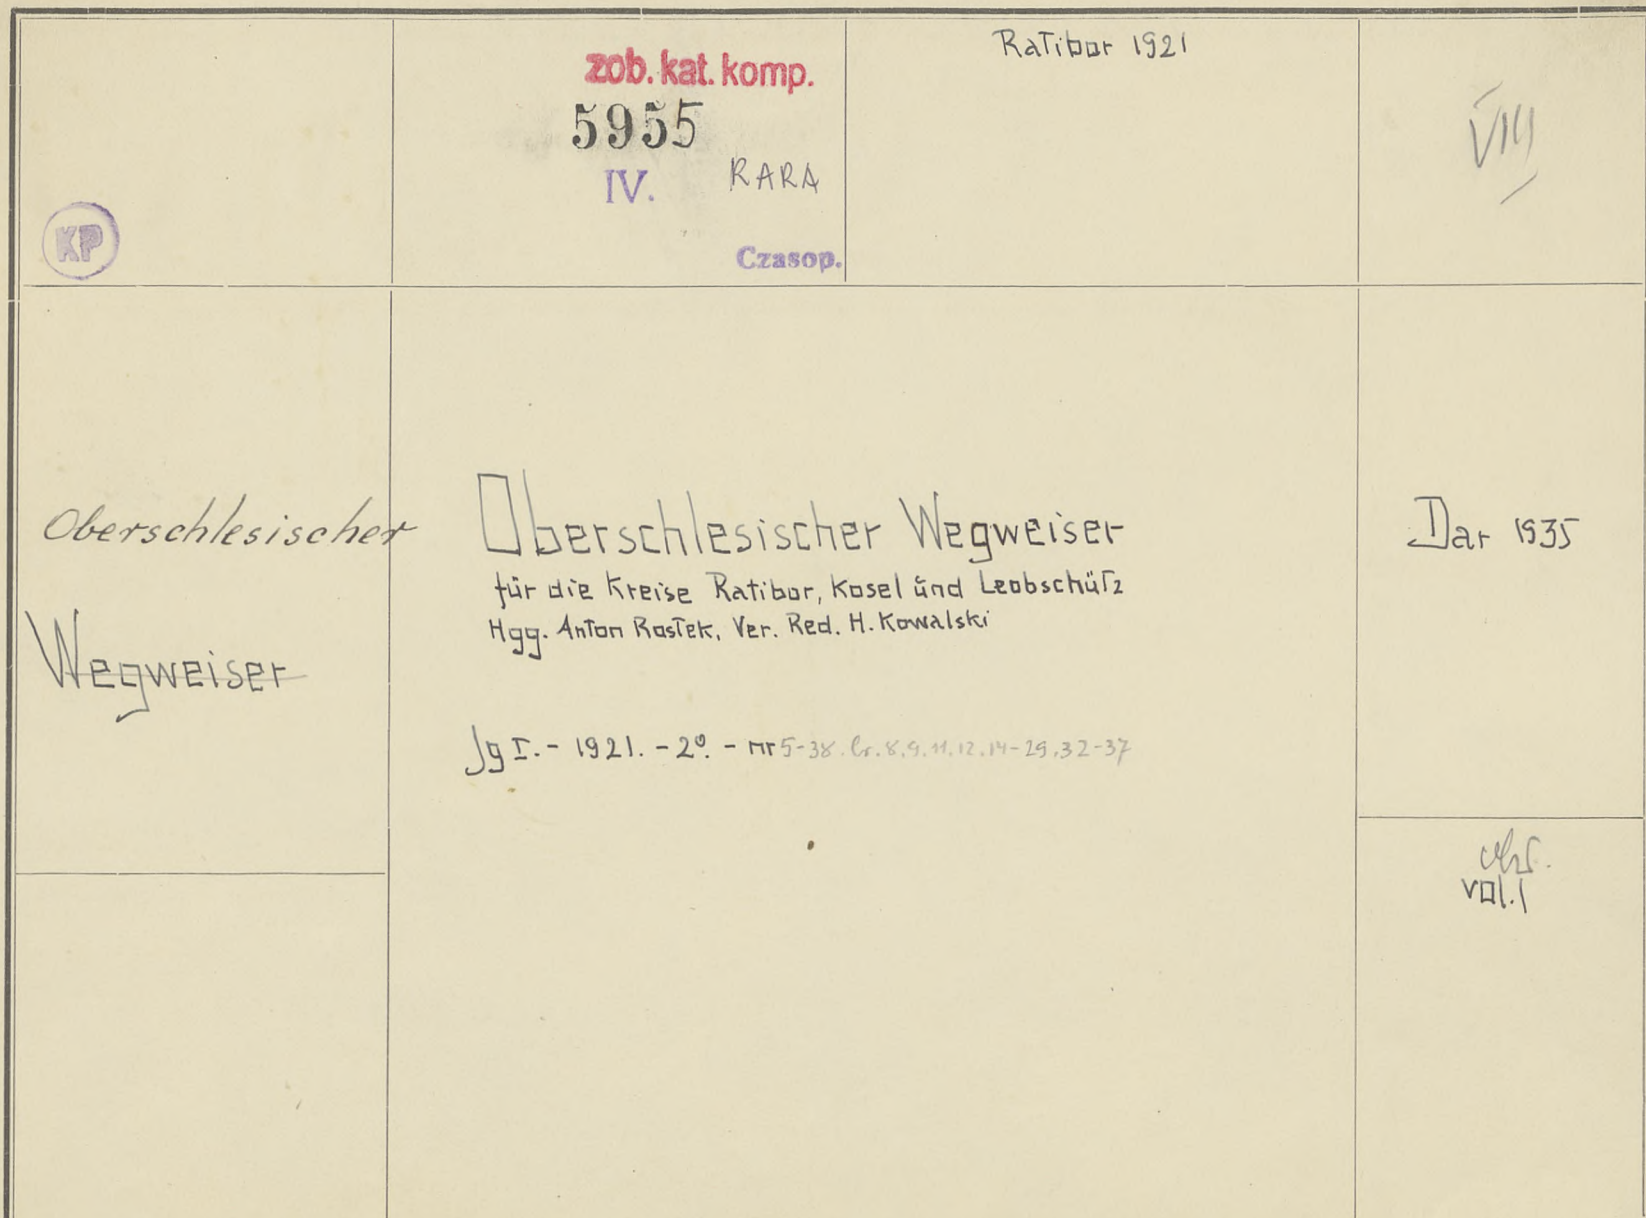 zob. kat. komp.
5955
IV. RARA
KP
Czasop.
Ratibor 1921
VIII
Oberschlesischer
Wegweiser
Oberschlesischer Wegweiser
für die Kreise Ratibor, Kosel und Leobschütz
Hgg. Anton Rostek, Ver. Red. H. Kowalski
Jg I. - 1921. - 2º. - nr 5-38. br. 8.9.11.12.14-29.32-37
Dar 1935
vol. 1